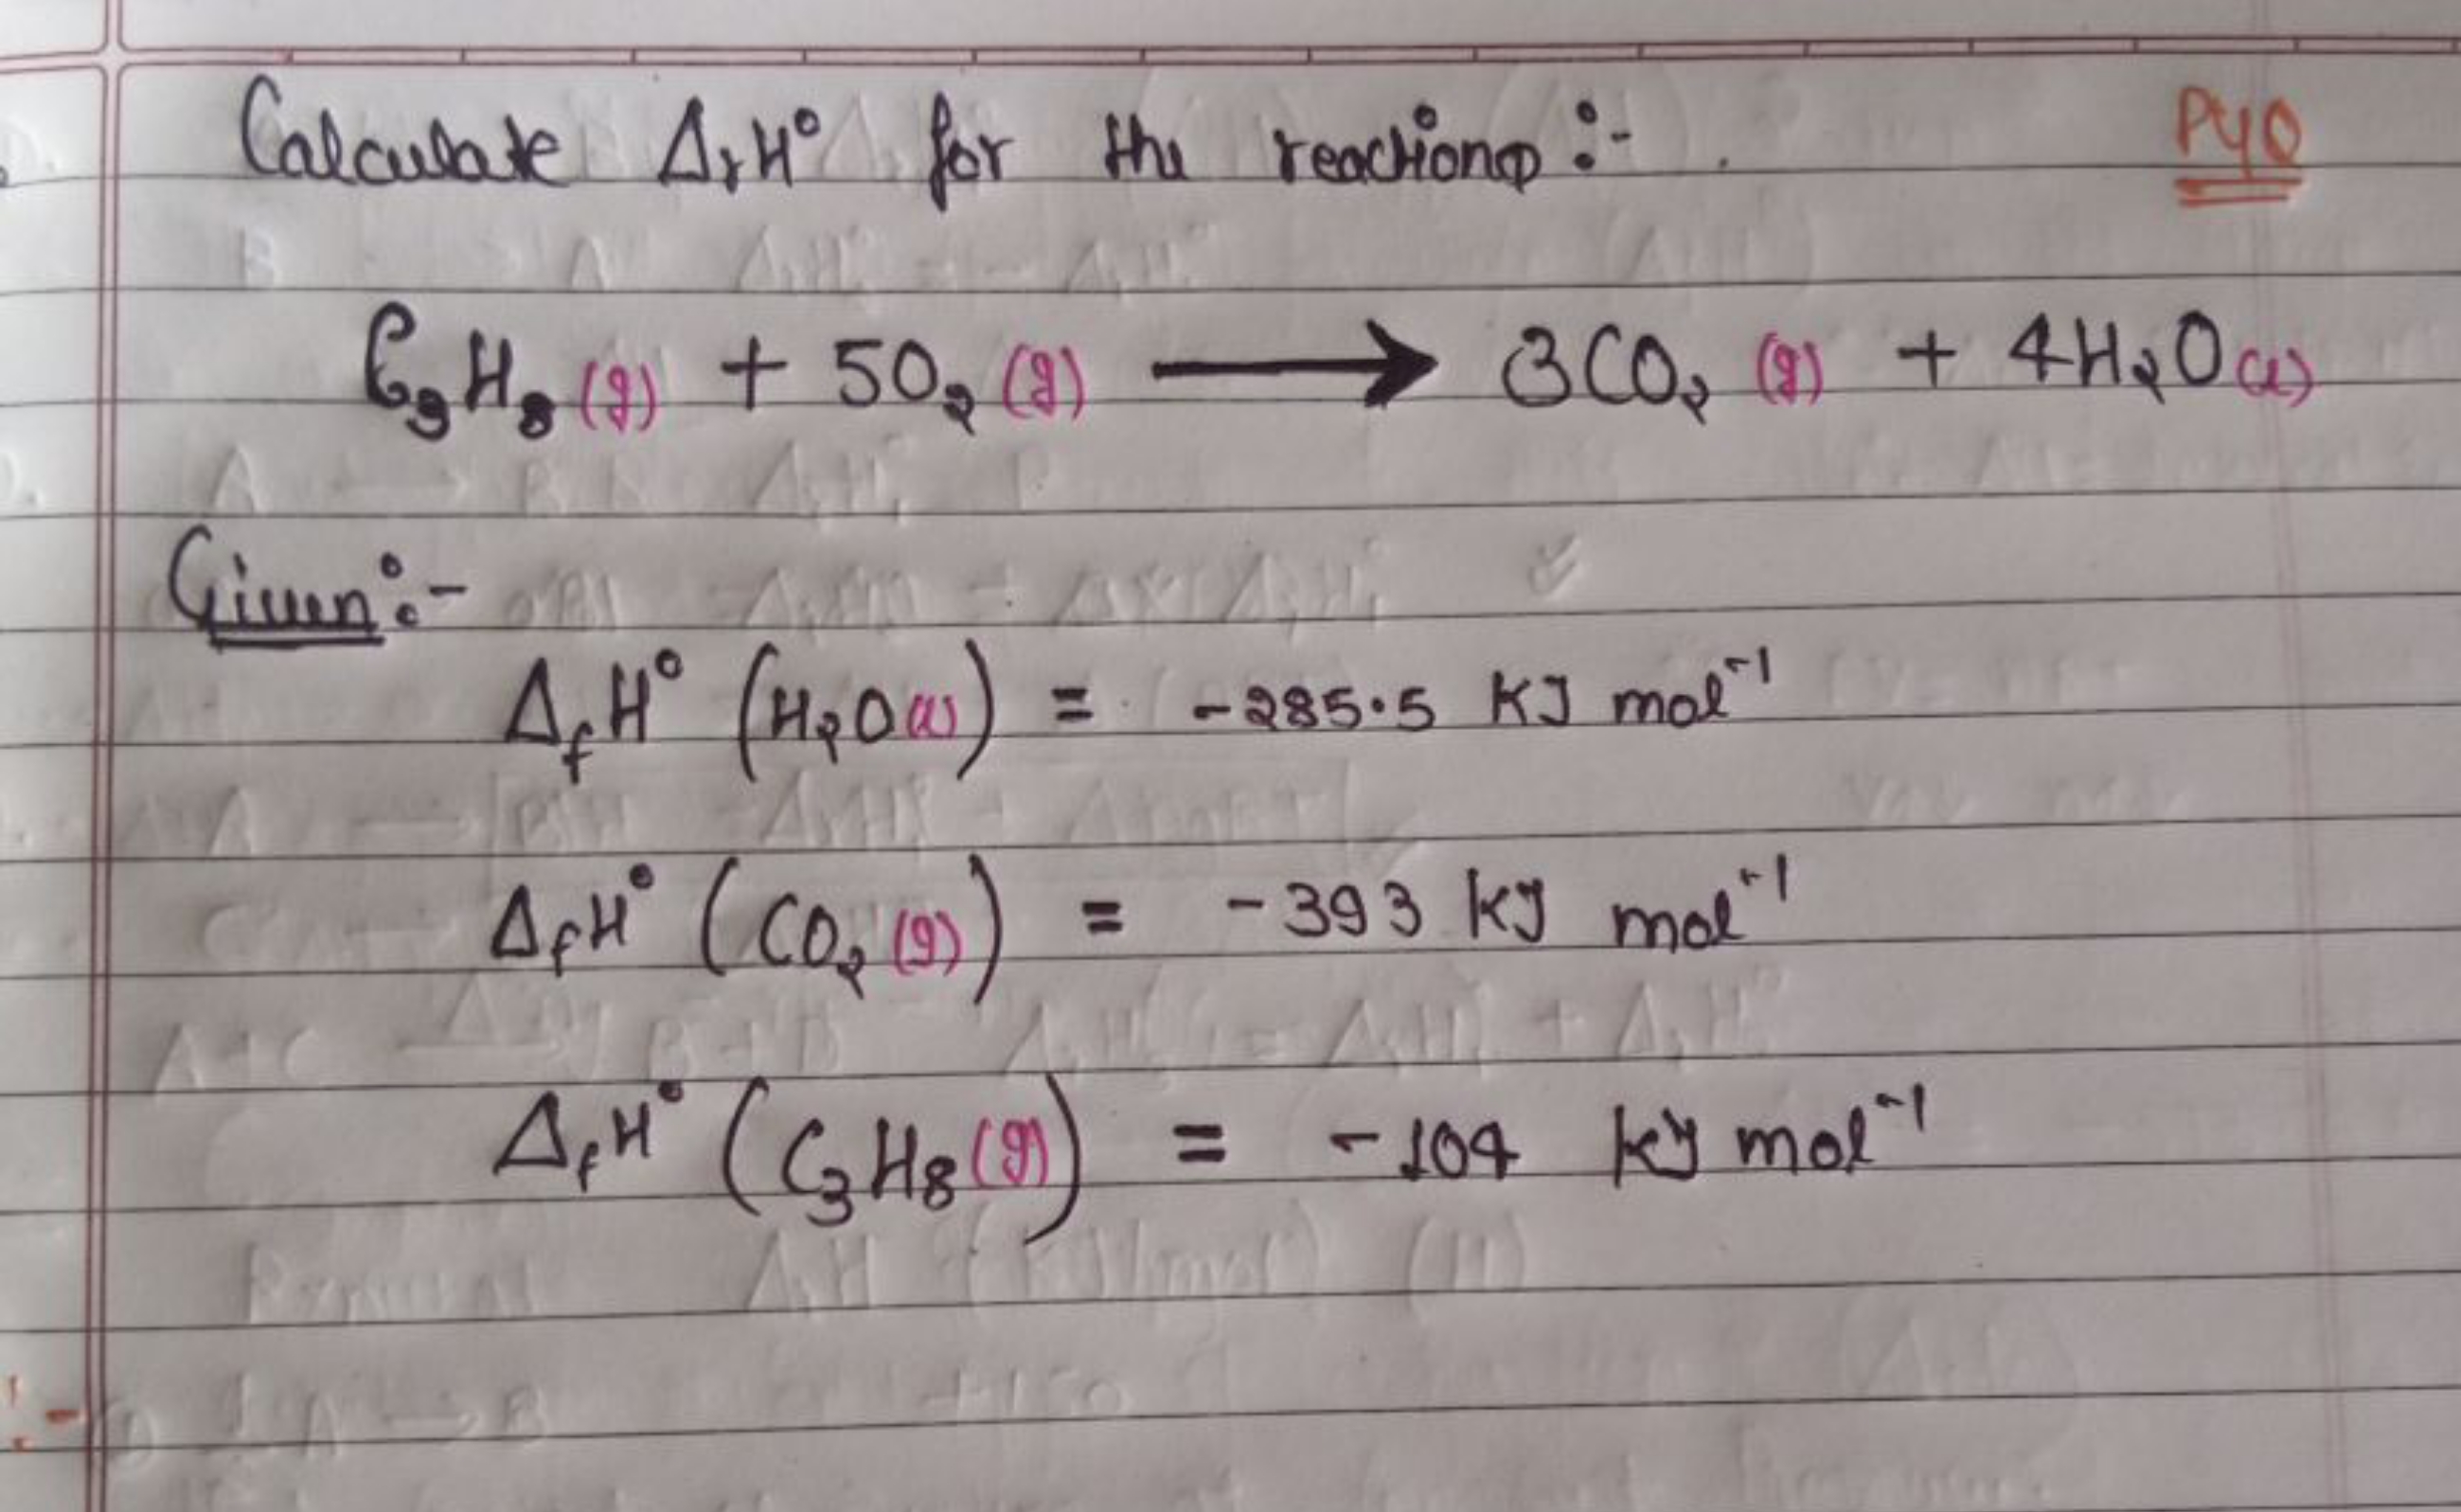 Calculate ΔrH° for the reaction :- PYQ
C₃H₈ (g) + 5O₂ (g) ⟶ 3CO₂ (g) + 4H₂O (l)
Given :-
ΔfH° (H₂O (l)) = -285.5 KJ mol⁻¹
ΔfH° (CO₂ (g)) = -393 kJ mol⁻¹
ΔfH° (C₃H₈ (g)) = -104 kJ mol⁻¹